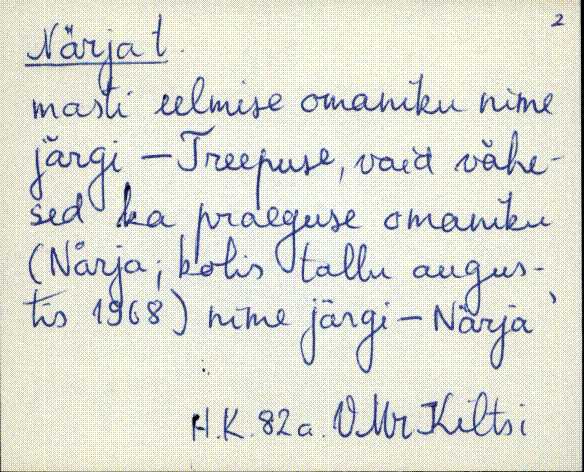 2
Närja t.
masti eelmise omaniku nime
järgi – Treepuse, vaid vähe-
sed ka praeguse omaniku
(Närja; kolis tallu augus-
tis 1968) nime järgi – Närja'
H.K. 82 a. VMr Kiltsi